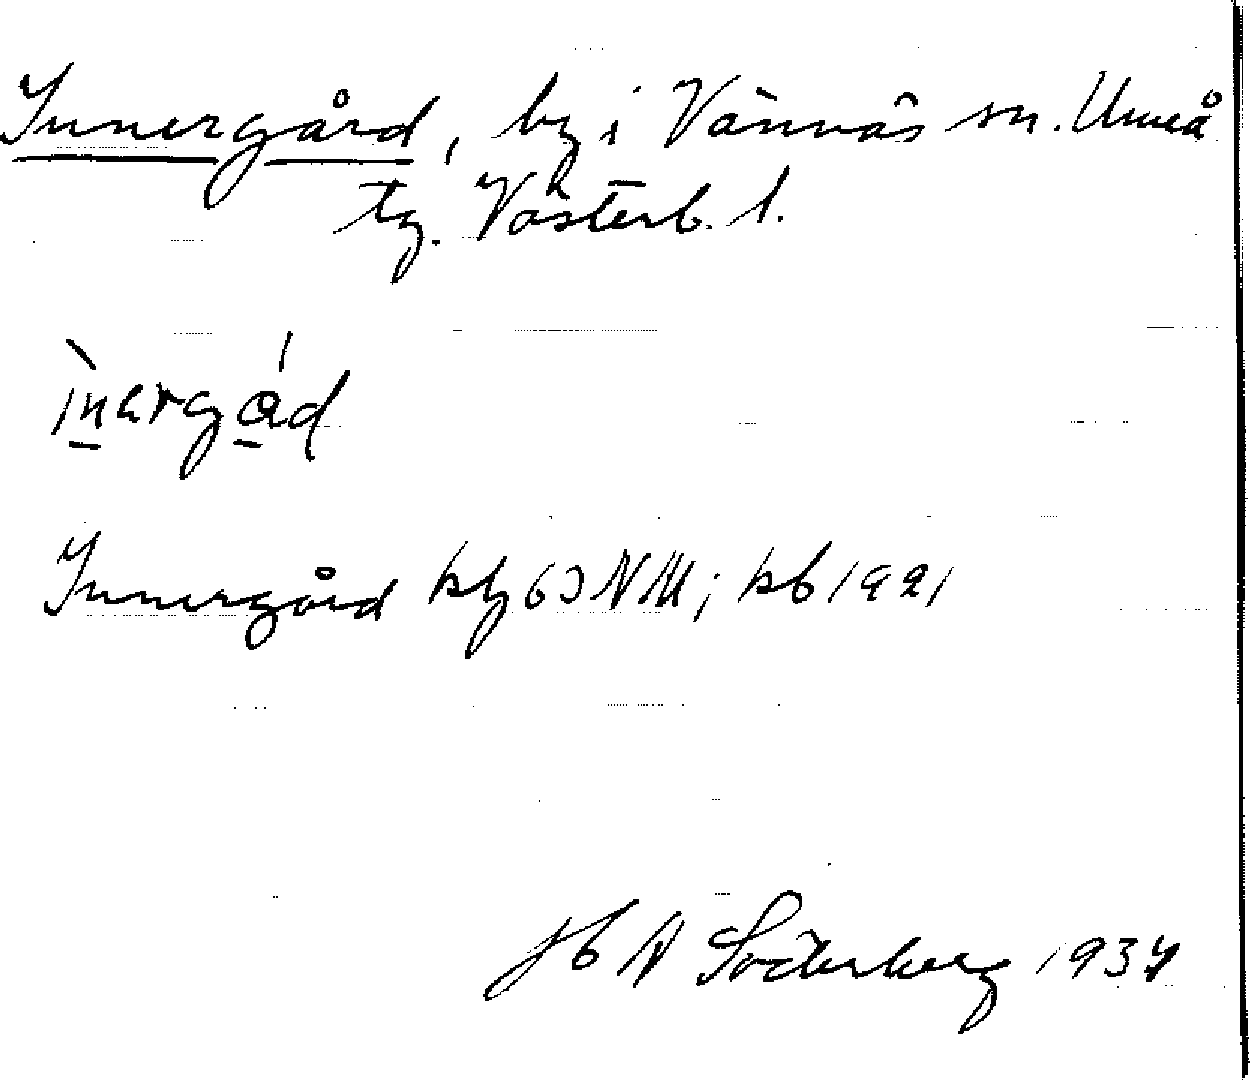 Innergård, by i Vännäs sn. Umeå
tg. Västerb. l.
ìnərgá̱d
Innergård kbg 63 NM; kb 1921
Jb N Söderberg 1934